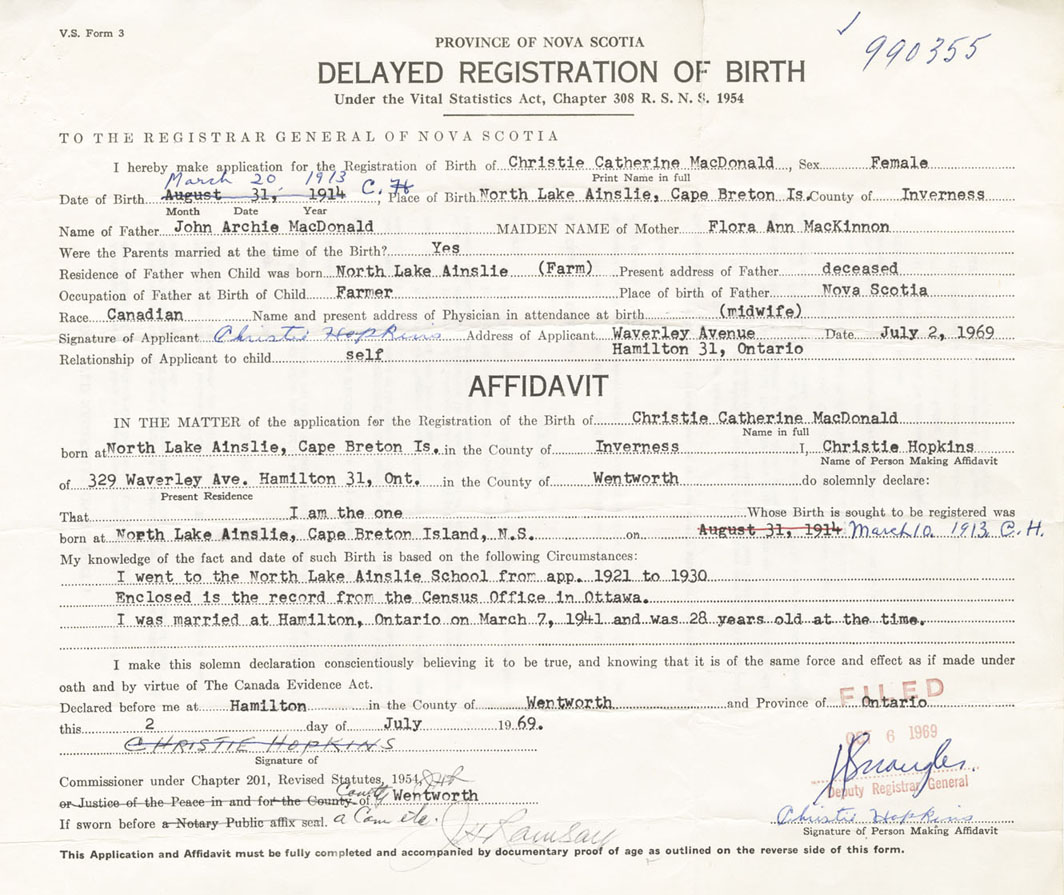 V.S. Form 3
990355
PROVINCE OF NOVA SCOTIA
DELAYED REGISTRATION OF BIRTH
Under the Vital Statistics Act, Chapter 308 R. S. N. S. 1954
TO THE REGISTRAR GENERAL OF NOVA SCOTIA
I hereby make application for the Registration of Birth of Christie Catherine MacDonald, Sex Female
Print Name in full
March 20 1913
Date of Birth August 31, 1914 C. H, Place of Birth North Lake Ainslie, Cape Breton Is. County of Inverness
Month Date Year
Name of Father John Archie MacDonald MAIDEN NAME of Mother Flora Ann MacKinnon
Were the Parents married at the time of the Birth? Yes
Residence of Father when Child was born North Lake Ainslie (Farm) Present address of Father deceased
Occupation of Father at Birth of Child Farmer Place of birth of Father Nova Scotia
Race Canadian Name and present address of Physician in attendance at birth (midwife)
Signature of Applicant Christie Hopkins Address of Applicant Waverley Avenue Date July 2, 1969
Relationship of Applicant to child self Hamilton 31, Ontario
AFFIDAVIT
IN THE MATTER of the application for the Registration of the Birth of Christie Catherine MacDonald
Name in full
born at North Lake Ainslie, Cape Breton Is. in the County of Inverness I, Christie Hopkins
Name of Person Making Affidavit
of 329 Waverley Ave. Hamilton 31, Ont. in the County of Wentworth do solemnly declare:
Present Residence
That I am the one Whose Birth is sought to be registered was
born at North Lake Ainslie, Cape Breton Island, N.S. on August 31, 1914 March 10, 1913 C. H.
My knowledge of the fact and date of such Birth is based on the following Circumstances:
I went to the North Lake Ainslie School from app. 1921 to 1930
Enclosed is the record from the Census Office in Ottawa.
I was married at Hamilton, Ontario on March 7, 1941 and was 28 years old at the time.
I make this solemn declaration conscientiously believing it to be true, and knowing that it is of the same force and effect as if made under
oath and by virtue of The Canada Evidence Act.
Declared before me at Hamilton in the County of Wentworth and Province of Ontario
FILED
this 2 day of July 1969.
OCT 6 1969
CHRISTIE HOPKINS
Signature of
Deputy Registrar General
Commissioner under Chapter 201, Revised Statutes, 1954
or Justice of the Peace in and for the County of County Wentworth
Christie Hopkins
If sworn before a Notary Public affix seal. a Com etc. J H Ramsay
Signature of Person Making Affidavit
This Application and Affidavit must be fully completed and accompanied by documentary proof of age as outlined on the reverse side of this form.